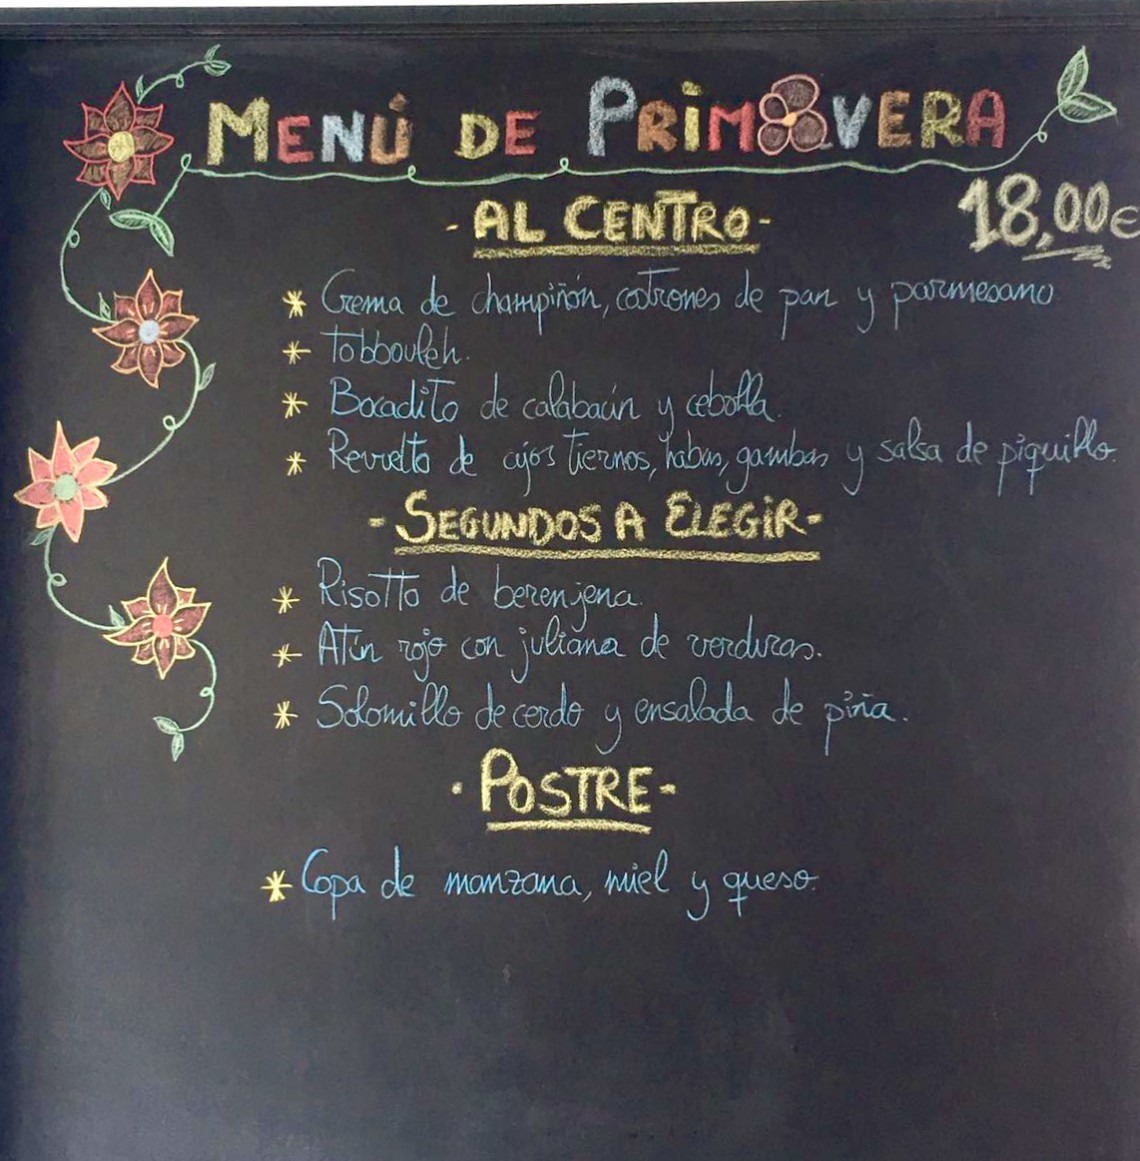 MENÚ DE PRIMAVERA
- AL CENTRO -
18,00€
* Crema de champiñón, costrones de pan y parmesano
* Tobbouleh.
* Bocadito de calabacín y cebolla.
* Revuelto de ajos tiernos, habas, gambas y salsa de piquillo.
- SEGUNDOS A ELEGIR -
* Risotto de berenjena.
* Atún rojo con juliana de verduras.
* Solomillo de cerdo y ensalada de piña.
- POSTRE -
* Copa de manzana, miel y queso.